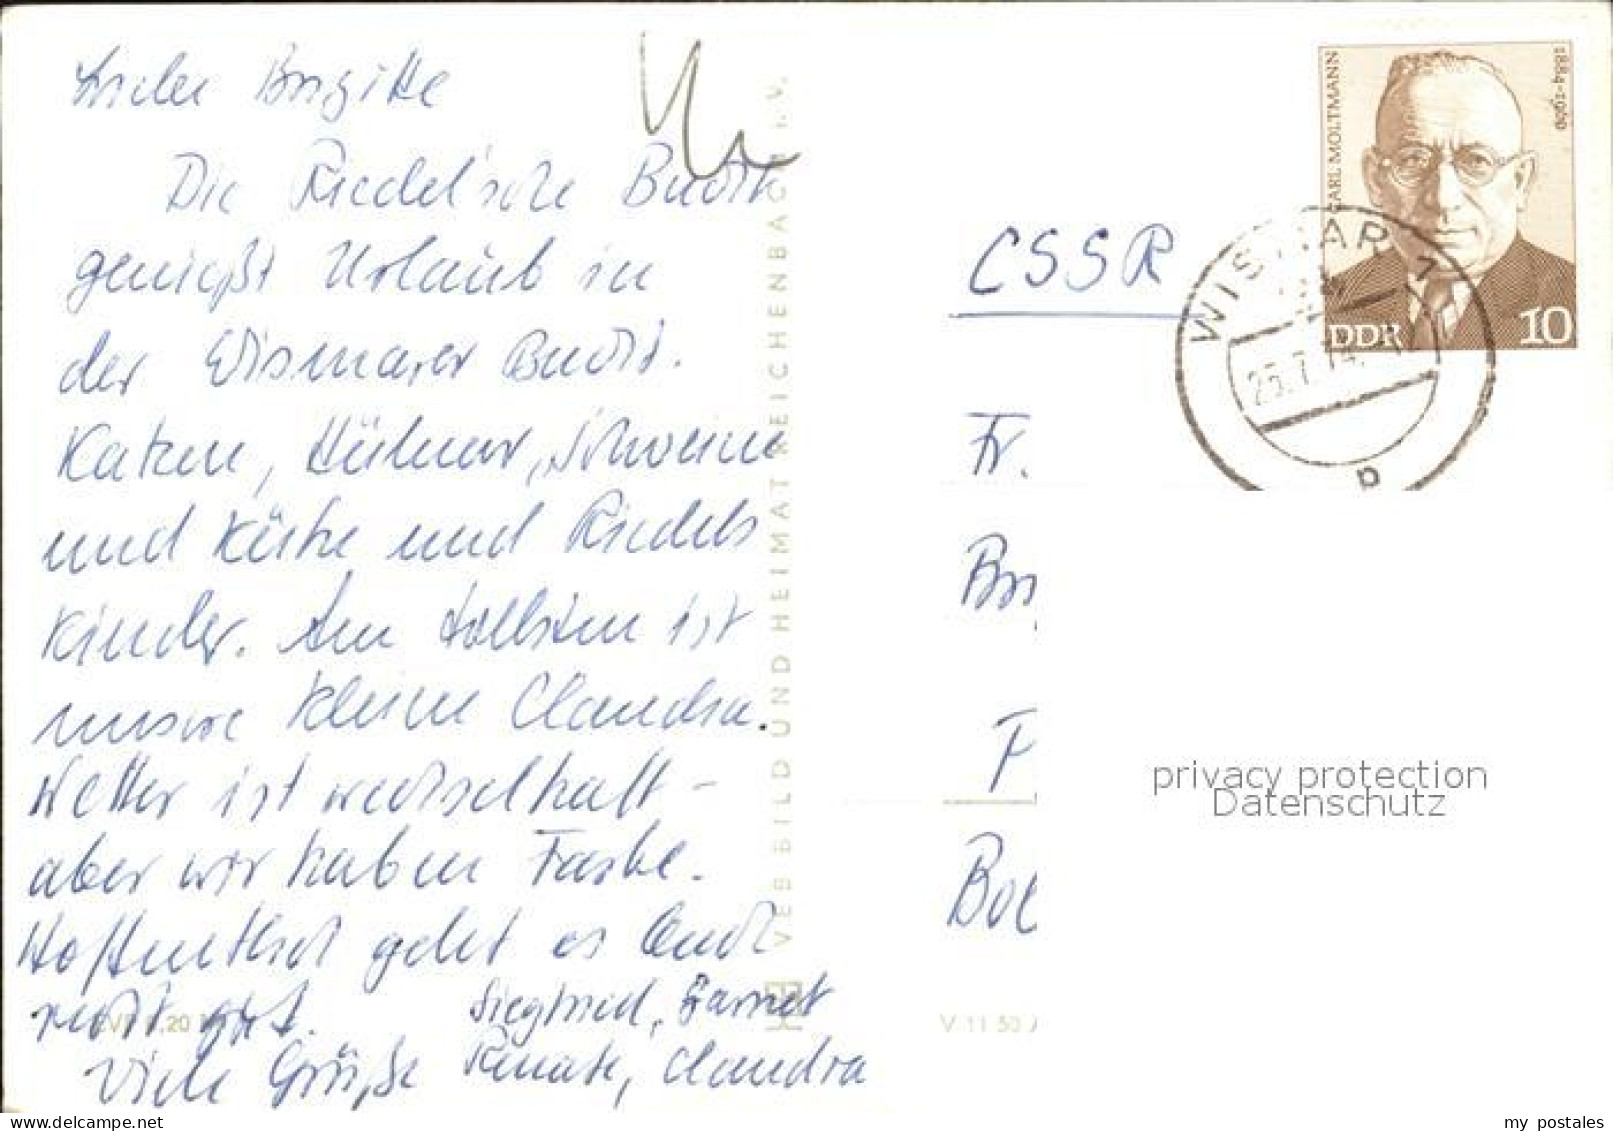 Liebe Brigitte
Die Riedel'sche Bucht
genießt Urlaub in
der Wismarer Bucht.
Katzen, Hühner, Schweine
und Küche und Riedels
Kinder. Am tollsten ist
unsere kleine Claudia.
Wetter ist wechselhaft -
aber wir haben Farbe.
Hoffentlich geht es Euch
recht gut.
Viele Grüße
Siegfried,
Renate, Claudia
VEB BILD UND HEIMAT REICHENBACH I. V.
V 11 50
CSSR
Fr.
CARL MOLTMANN
1884-1960
DDR 10
WISMAR 1
25.7.74
b
privacy protection
Datenschutz
my postales
www.delcampe.net